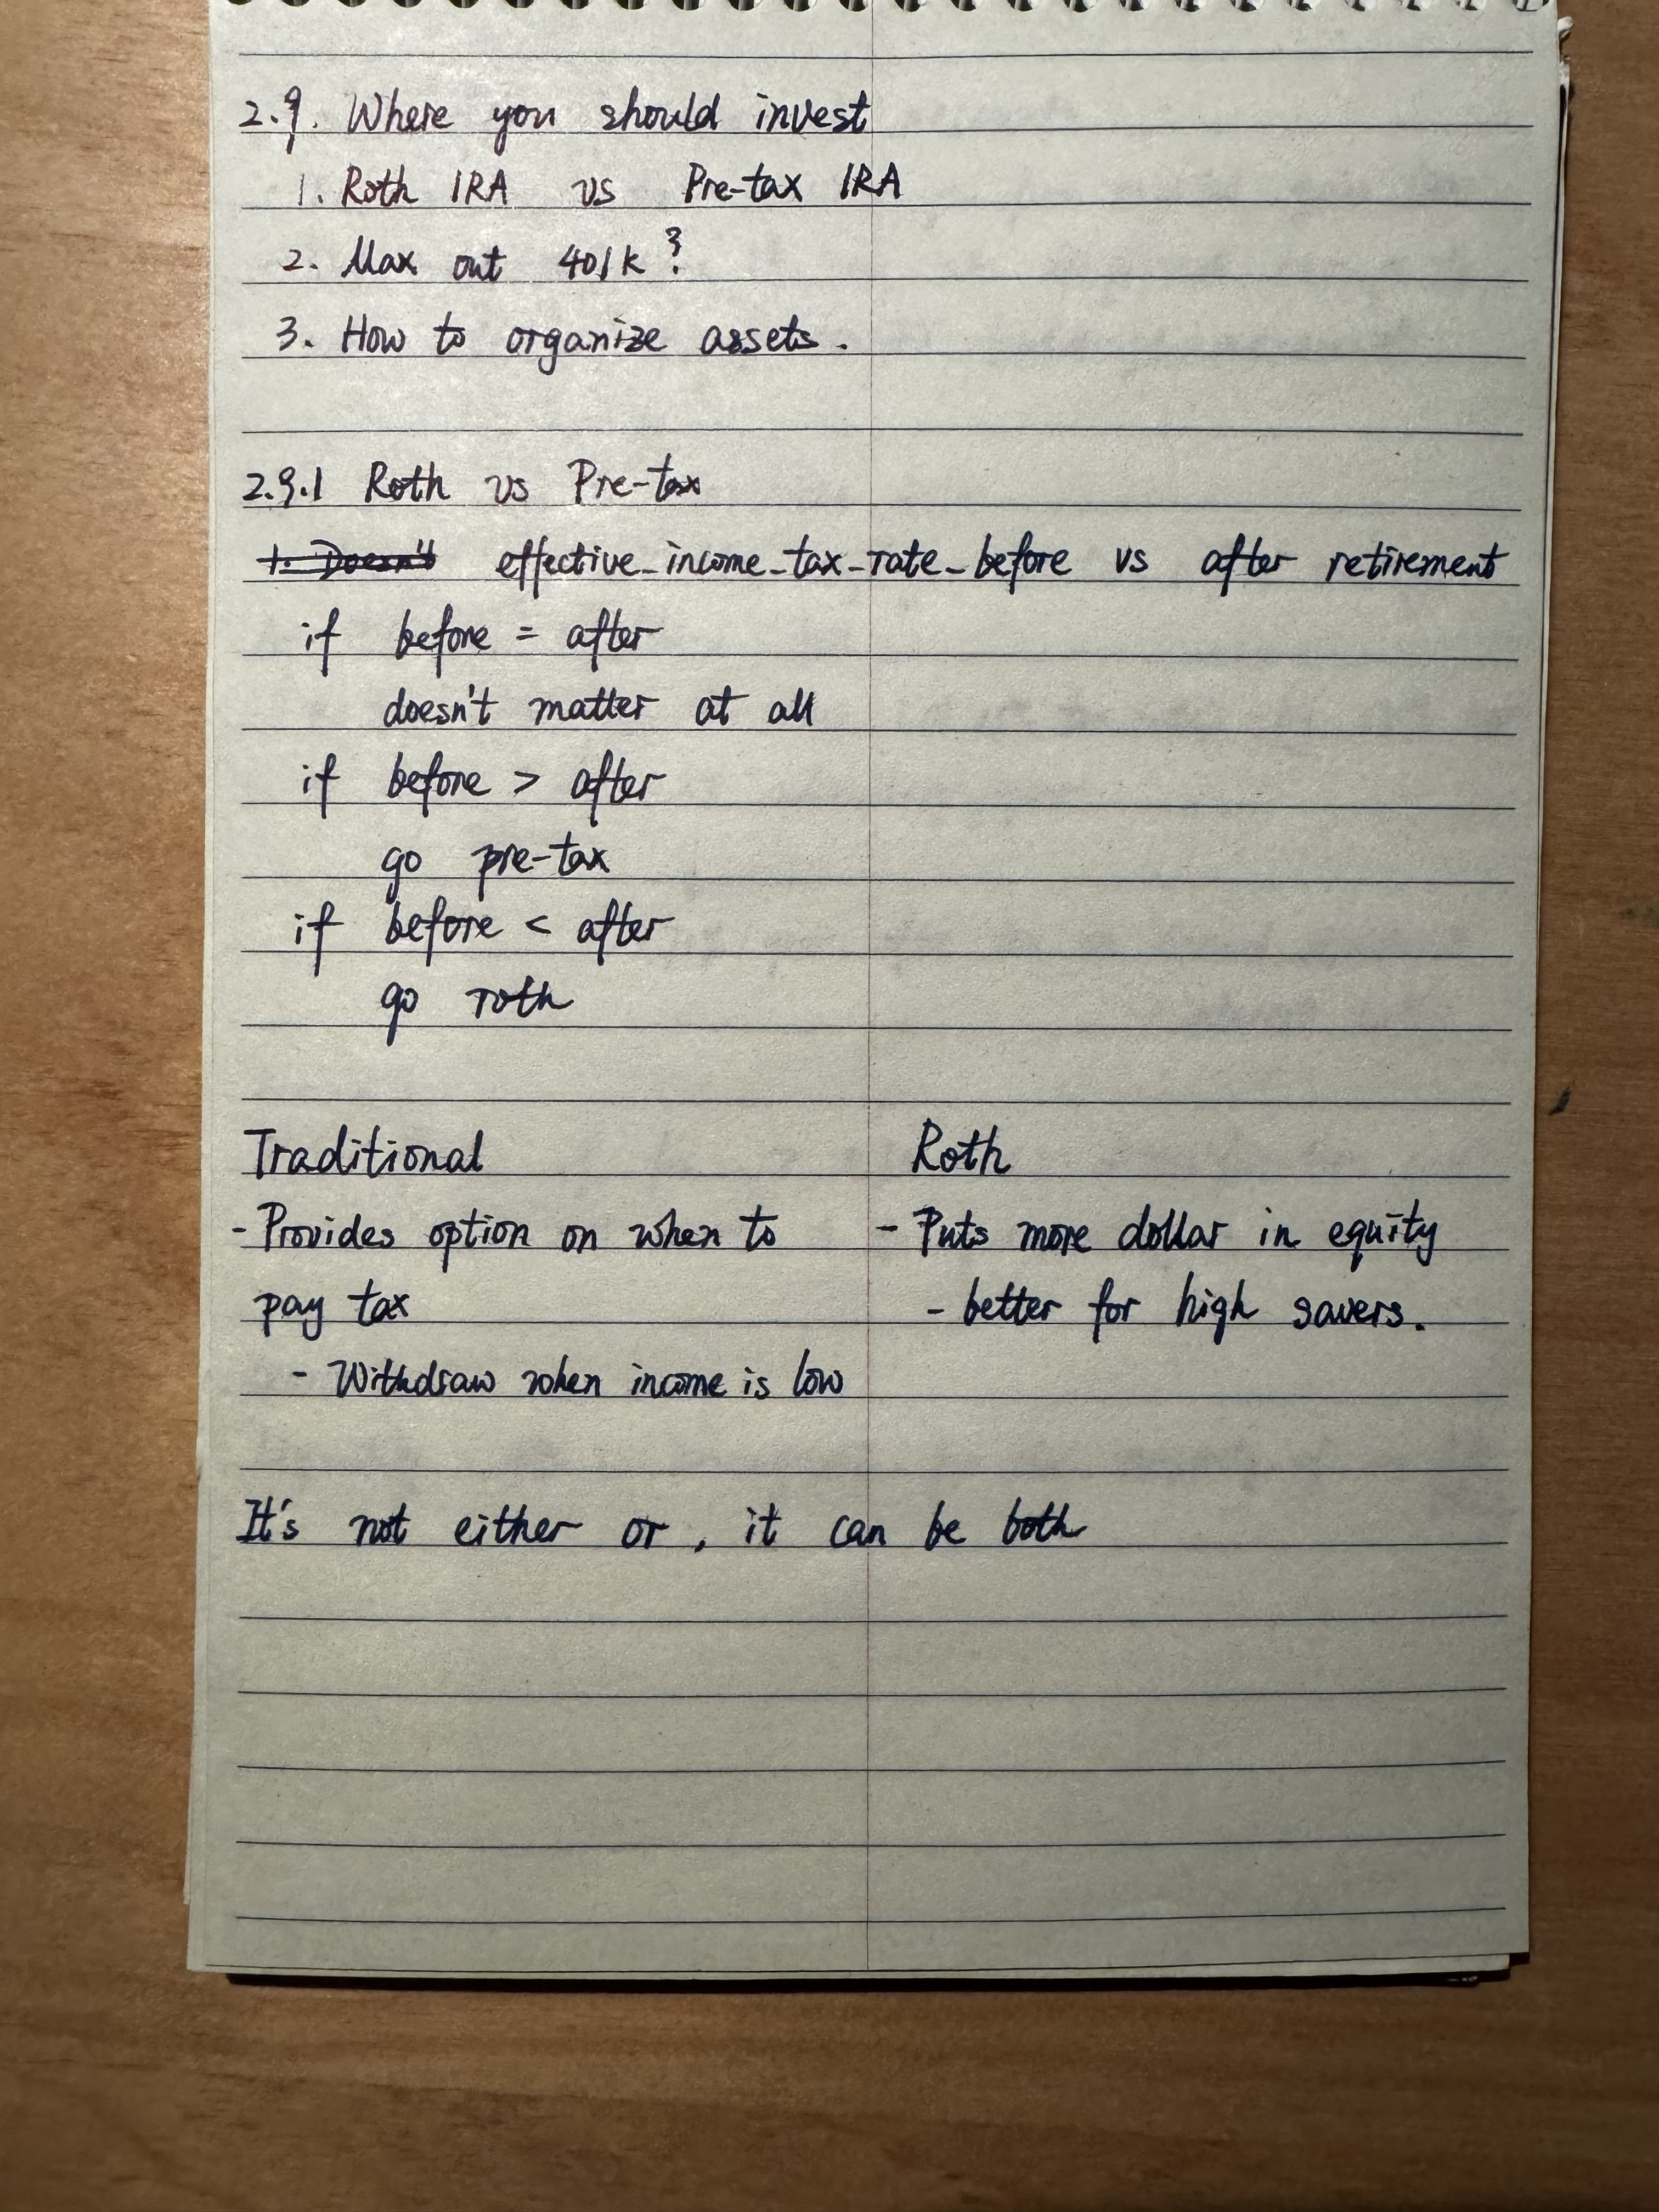 2.9. Where you should invest
1. Roth IRA vs Pre-tax IRA
2. Max out 401k?
3. How to organize assets.
2.9.1 Roth vs Pre-tax
1. Doesn't effective_income_tax_rate_before vs after retirement
if before = after
doesn't matter at all
if before > after
go pre-tax
if before < after
go roth
Traditional
- Provides option on when to
pay tax
- Withdraw when income is low
Roth
- Puts more dollar in equity
- better for high savers.
It's not either or, it can be both